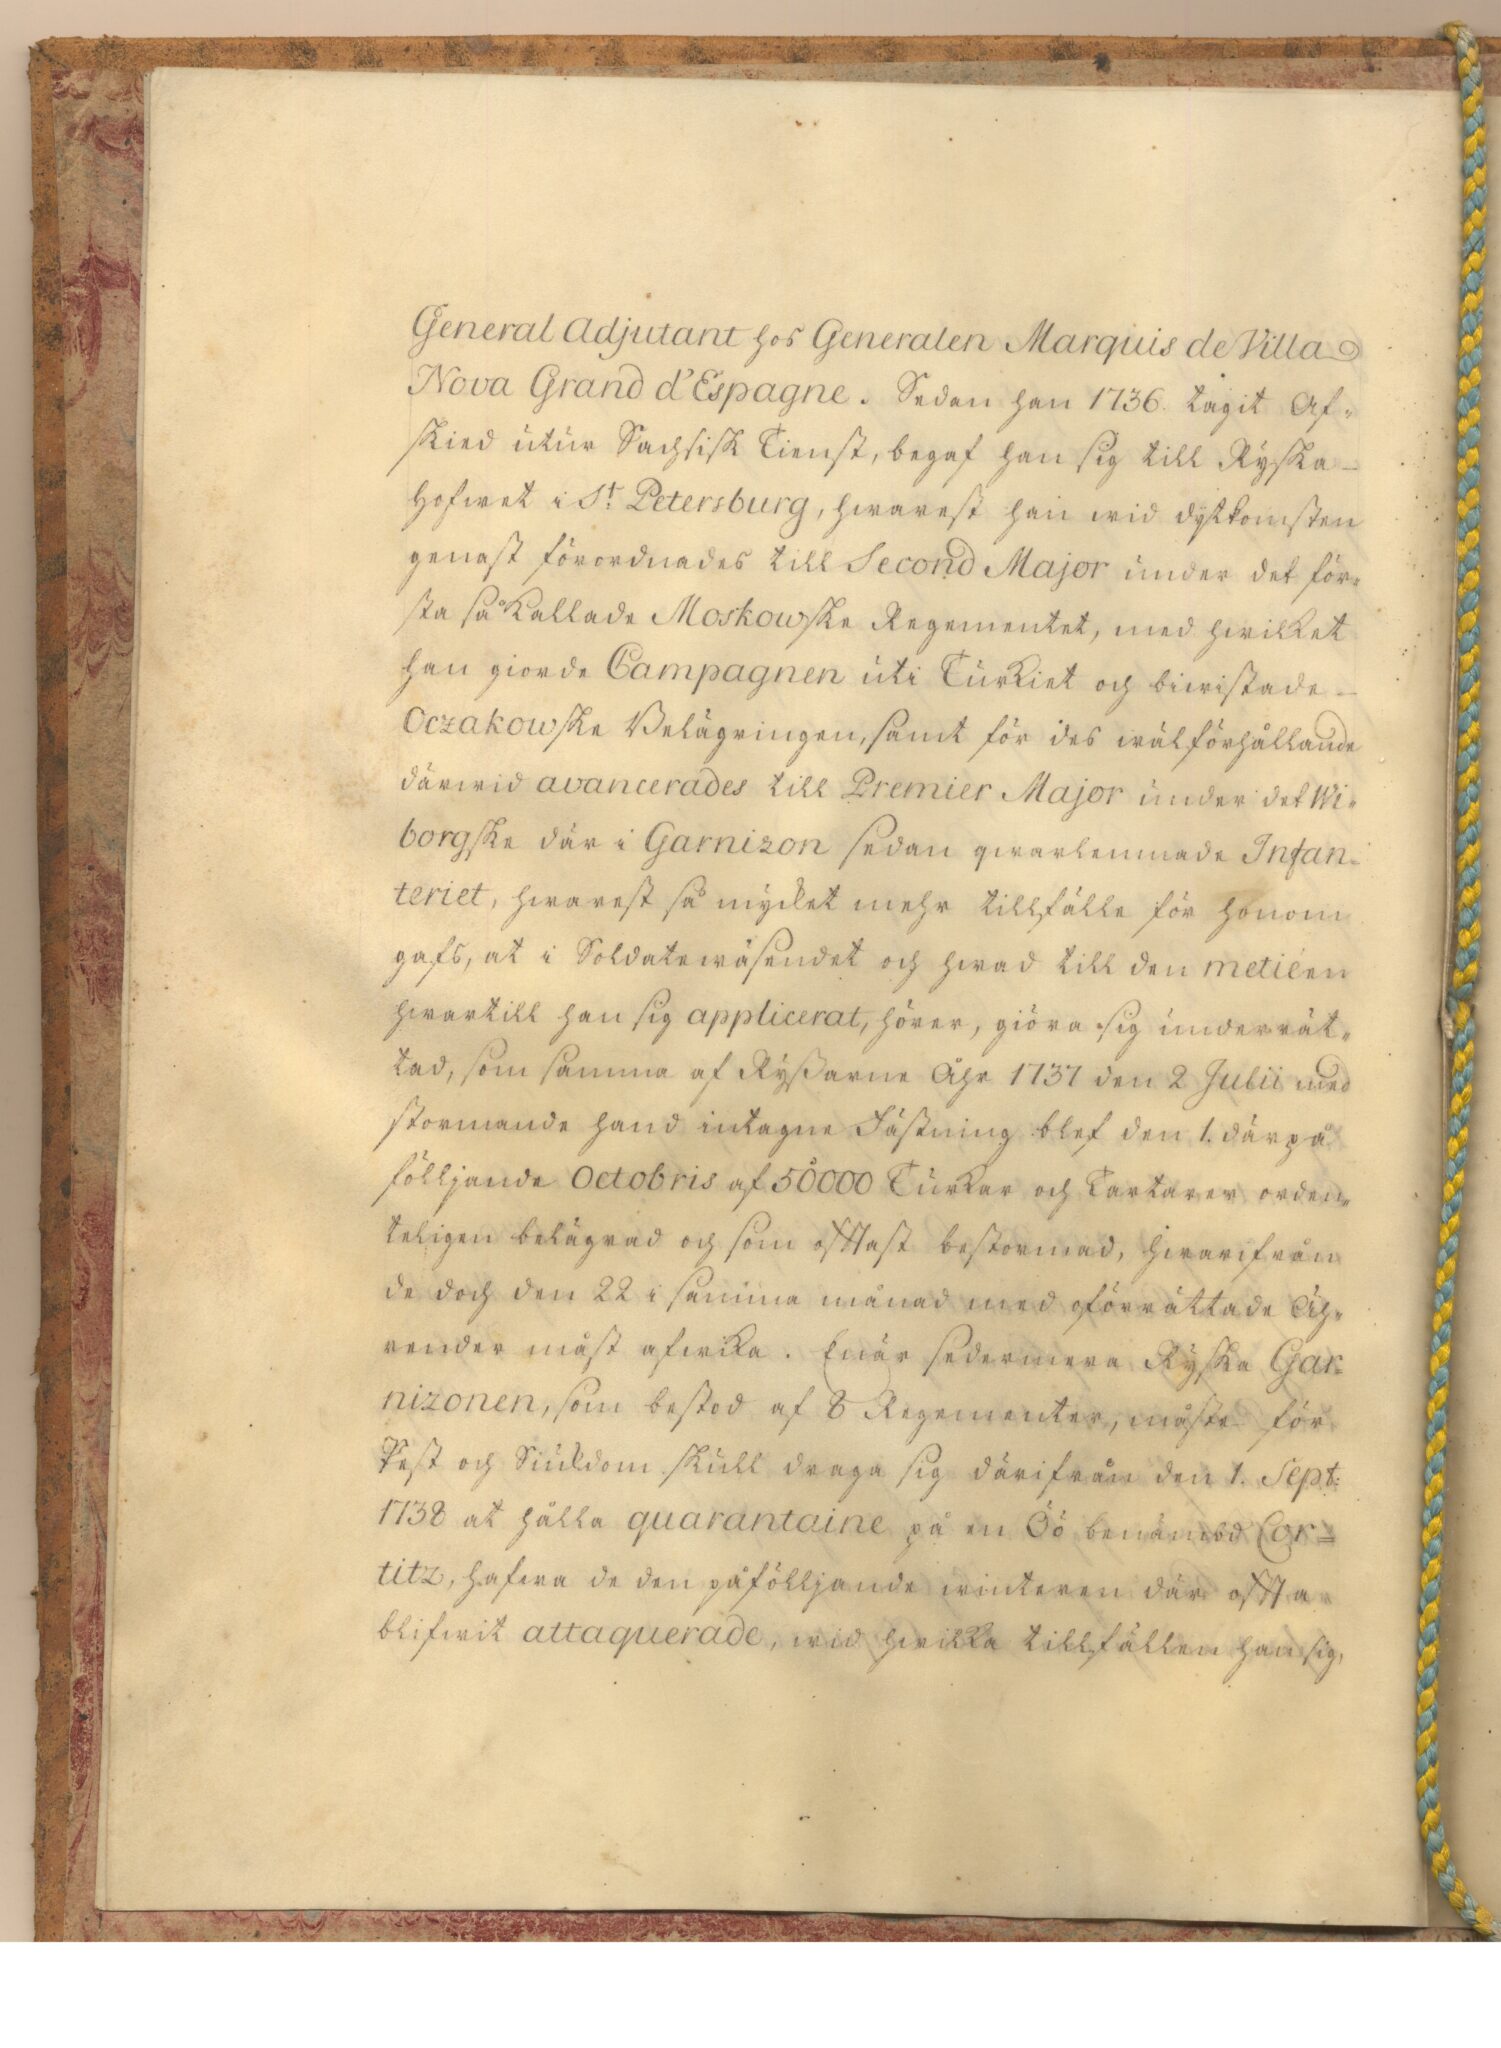 General Adjutant hos Generalen Marquis de Villa
Nova Grand d'Espagne. Sedan han 1736. tagit Af-
skied utur Sachsisk Tienst, begaf han sig till Ryska
Hofwet i St. Petersburg, hwarest han wid dytkomsten
genast förordnades till Second Major under det för-
sta så kallade Moskowske Regementet, med hwilket
han giorde Campagnen uti Turkiet och biwistade
Oczakowske Belägringen, samt för des wälförhållande
därwid avancerades till Premier Major under det Wi-
borgske där i Garnizon sedan qwarlemnade Infan-
teriet, hwarest så mycket mehr tillfälle för honom
gafs, at i Soldatewäsendet och hwad till den metieen
hwartill han sig applicerat, hörer, giöra sig underrät-
tad, som samma af Ryßarne Åhr 1737 den 2 Julii med
stormande hand intagne Fästning blef den 1. därpå
fölljande Octobris af 50000 Turkar och Tartarer orden-
teligen belägrad och som offtast bestormad, hwarifrån
de doch den 22 i samma månad med oförrättade Äh-
render måst afwika. Enär sedermera Ryska Gar-
nizonen, som bestod af 8 Regementer, måste för
Pest och Siukdom skull draga sig därifrån den 1. Sept:
1738 at hålla quarantaine på en Öö benämbd Cor-
titz, hafwa de den påfölljande winteren där offta
blifwit attaquerade, wid hwilka tillfällen han sig,